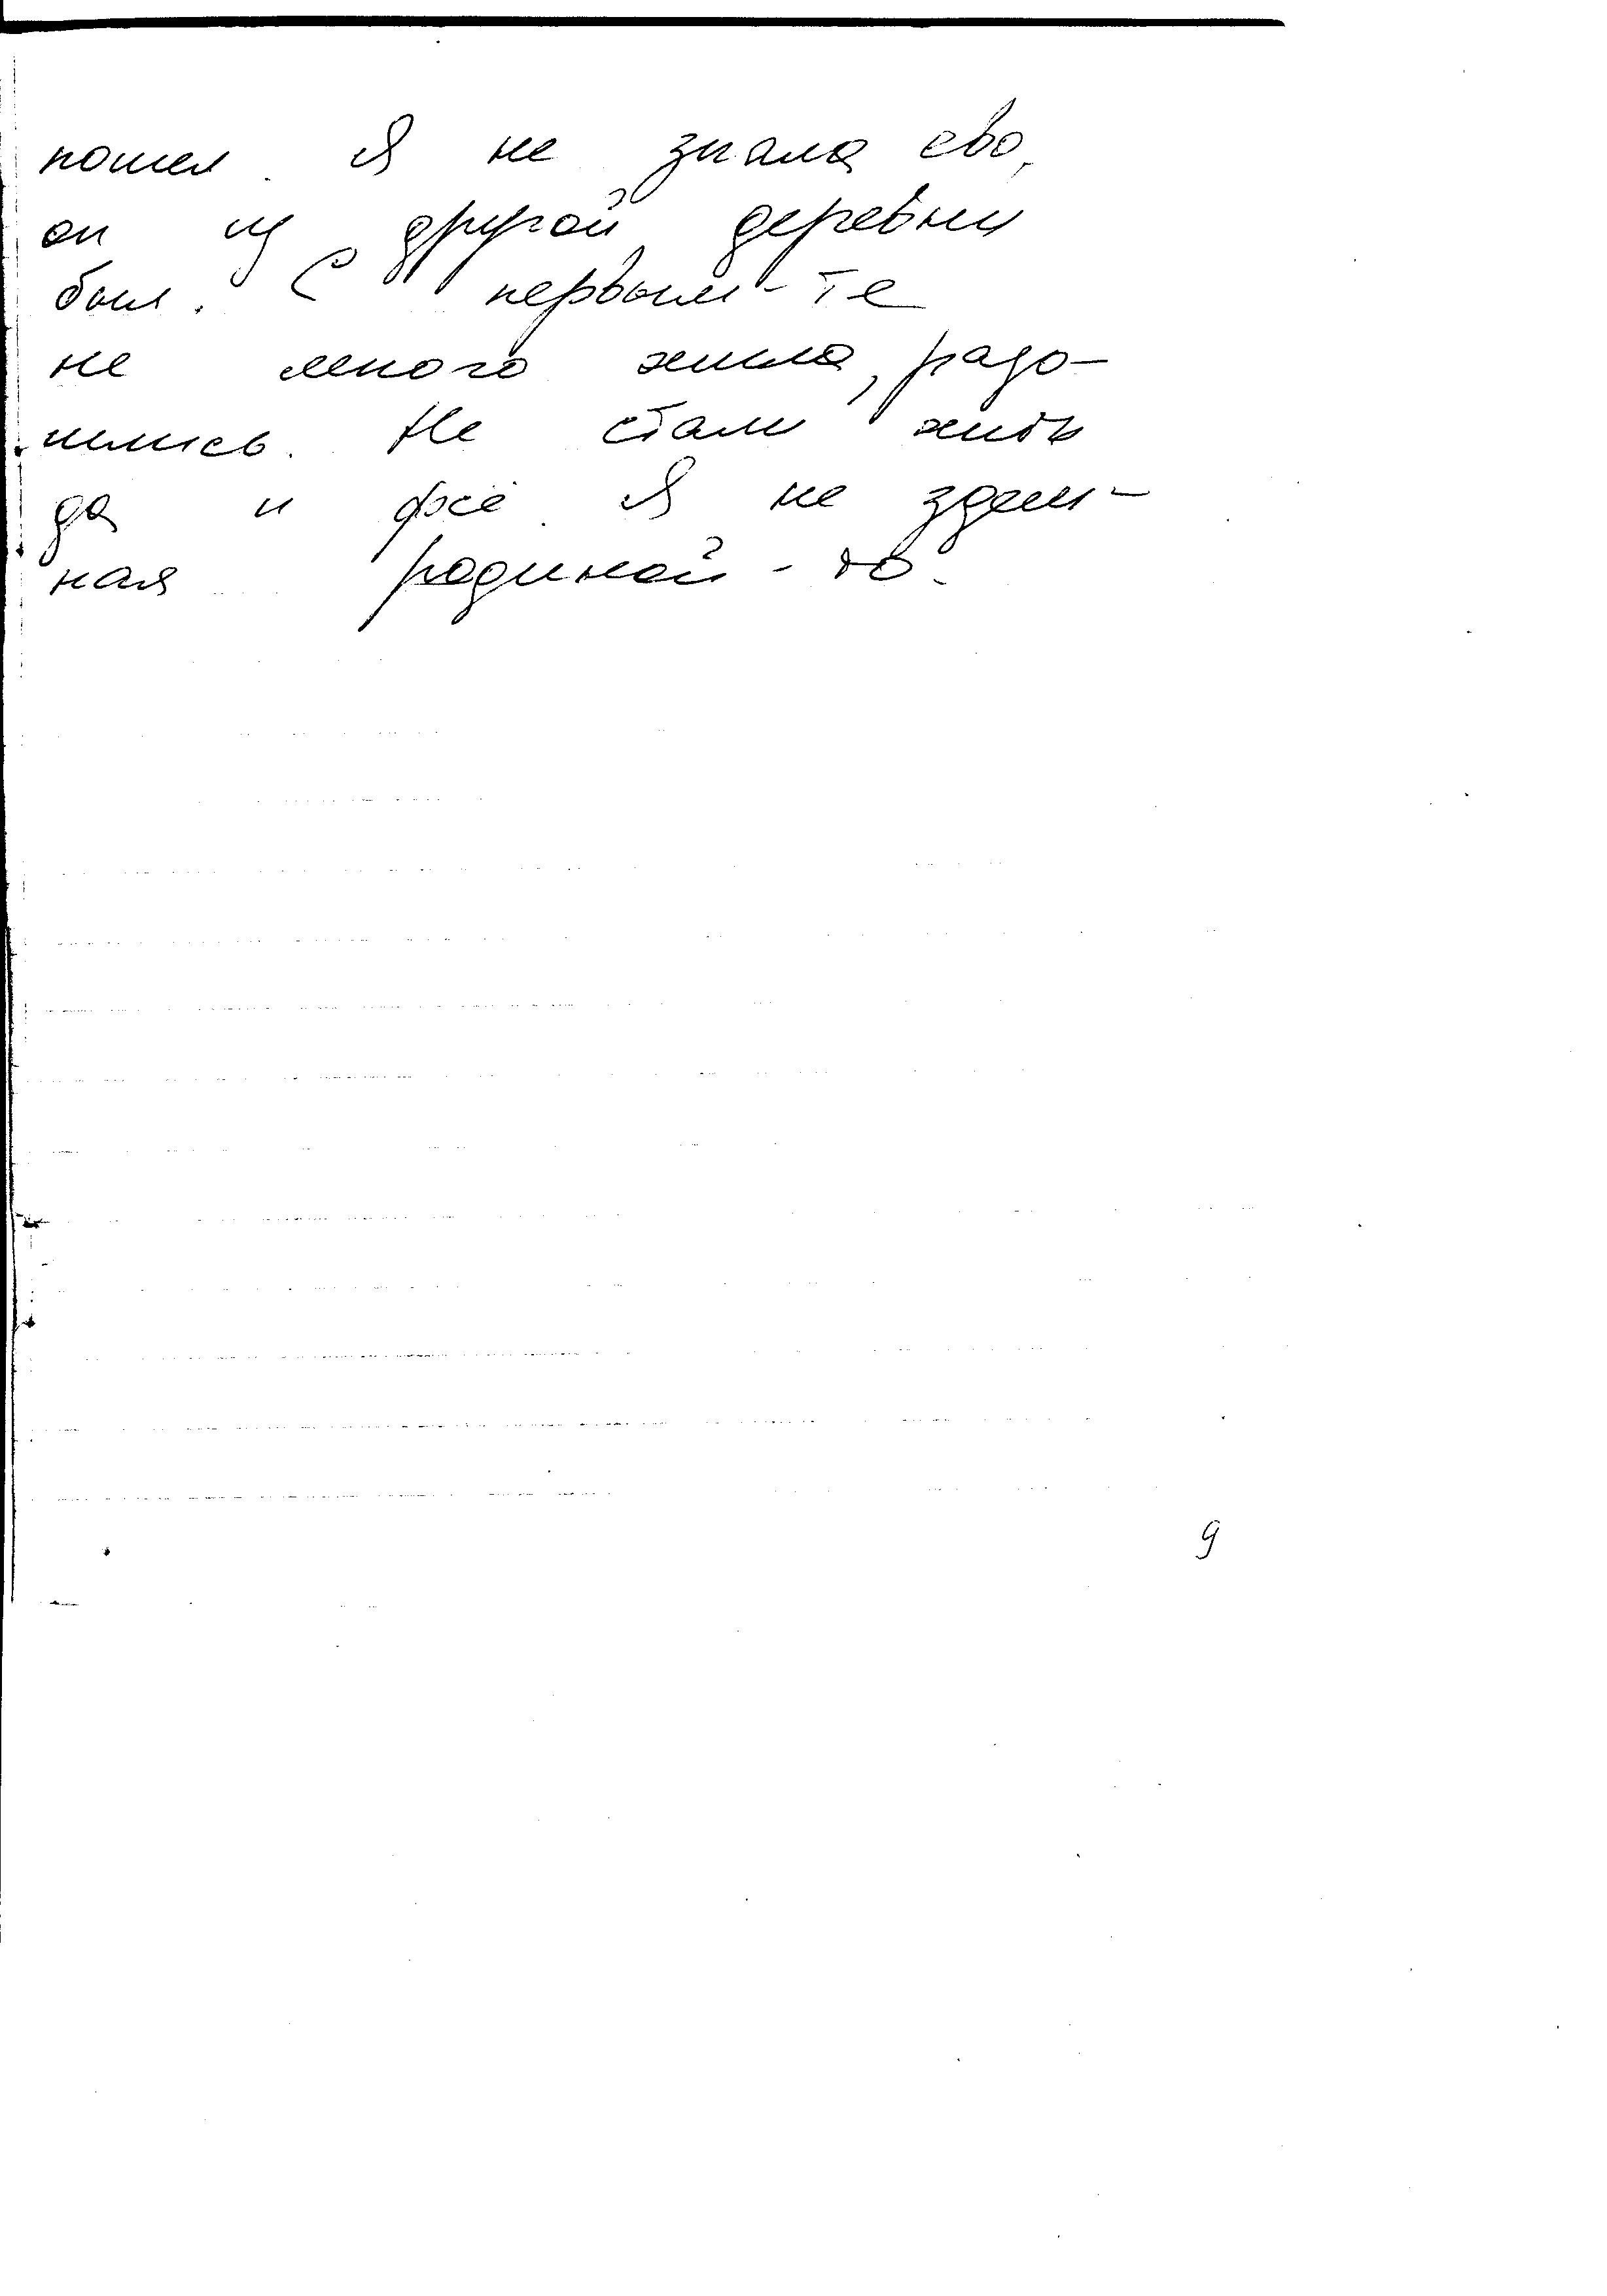 пошел. Я не знала ево,
он из другой деревни
был. С первым-те
не много жила, разо-
шлись. Не стали жить
да и фсё. Я не здеш-
ная родиной-то.
9